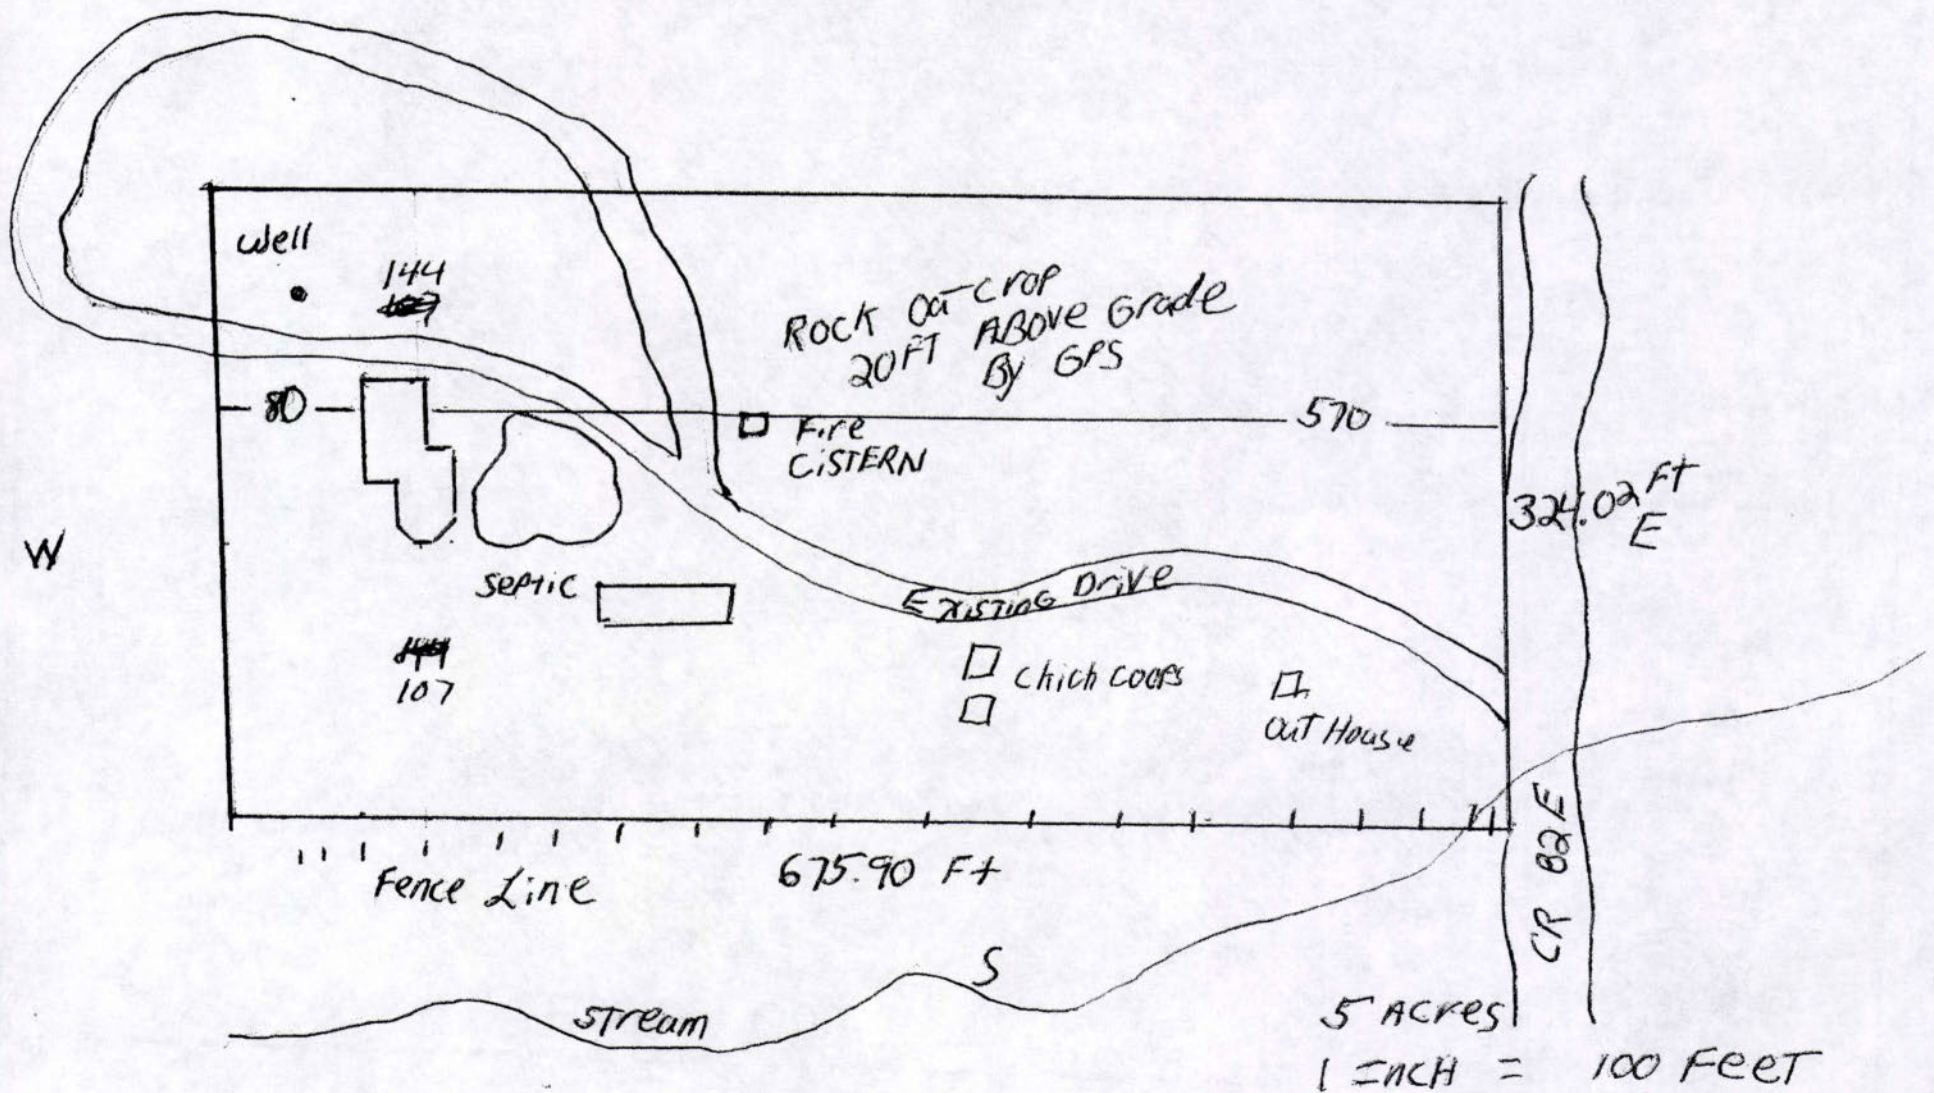 Well
144
Rock out-crop
20 FT Above Grade
By GPS
80
570
Fire
CISTERN
324.02 Ft
E
W
Septic
Existing Drive
107
Chich Coops
Out House
Fence Line
675.90 Ft
CR 82E
S
Stream
5 Acres
1 INCH = 100 FEET